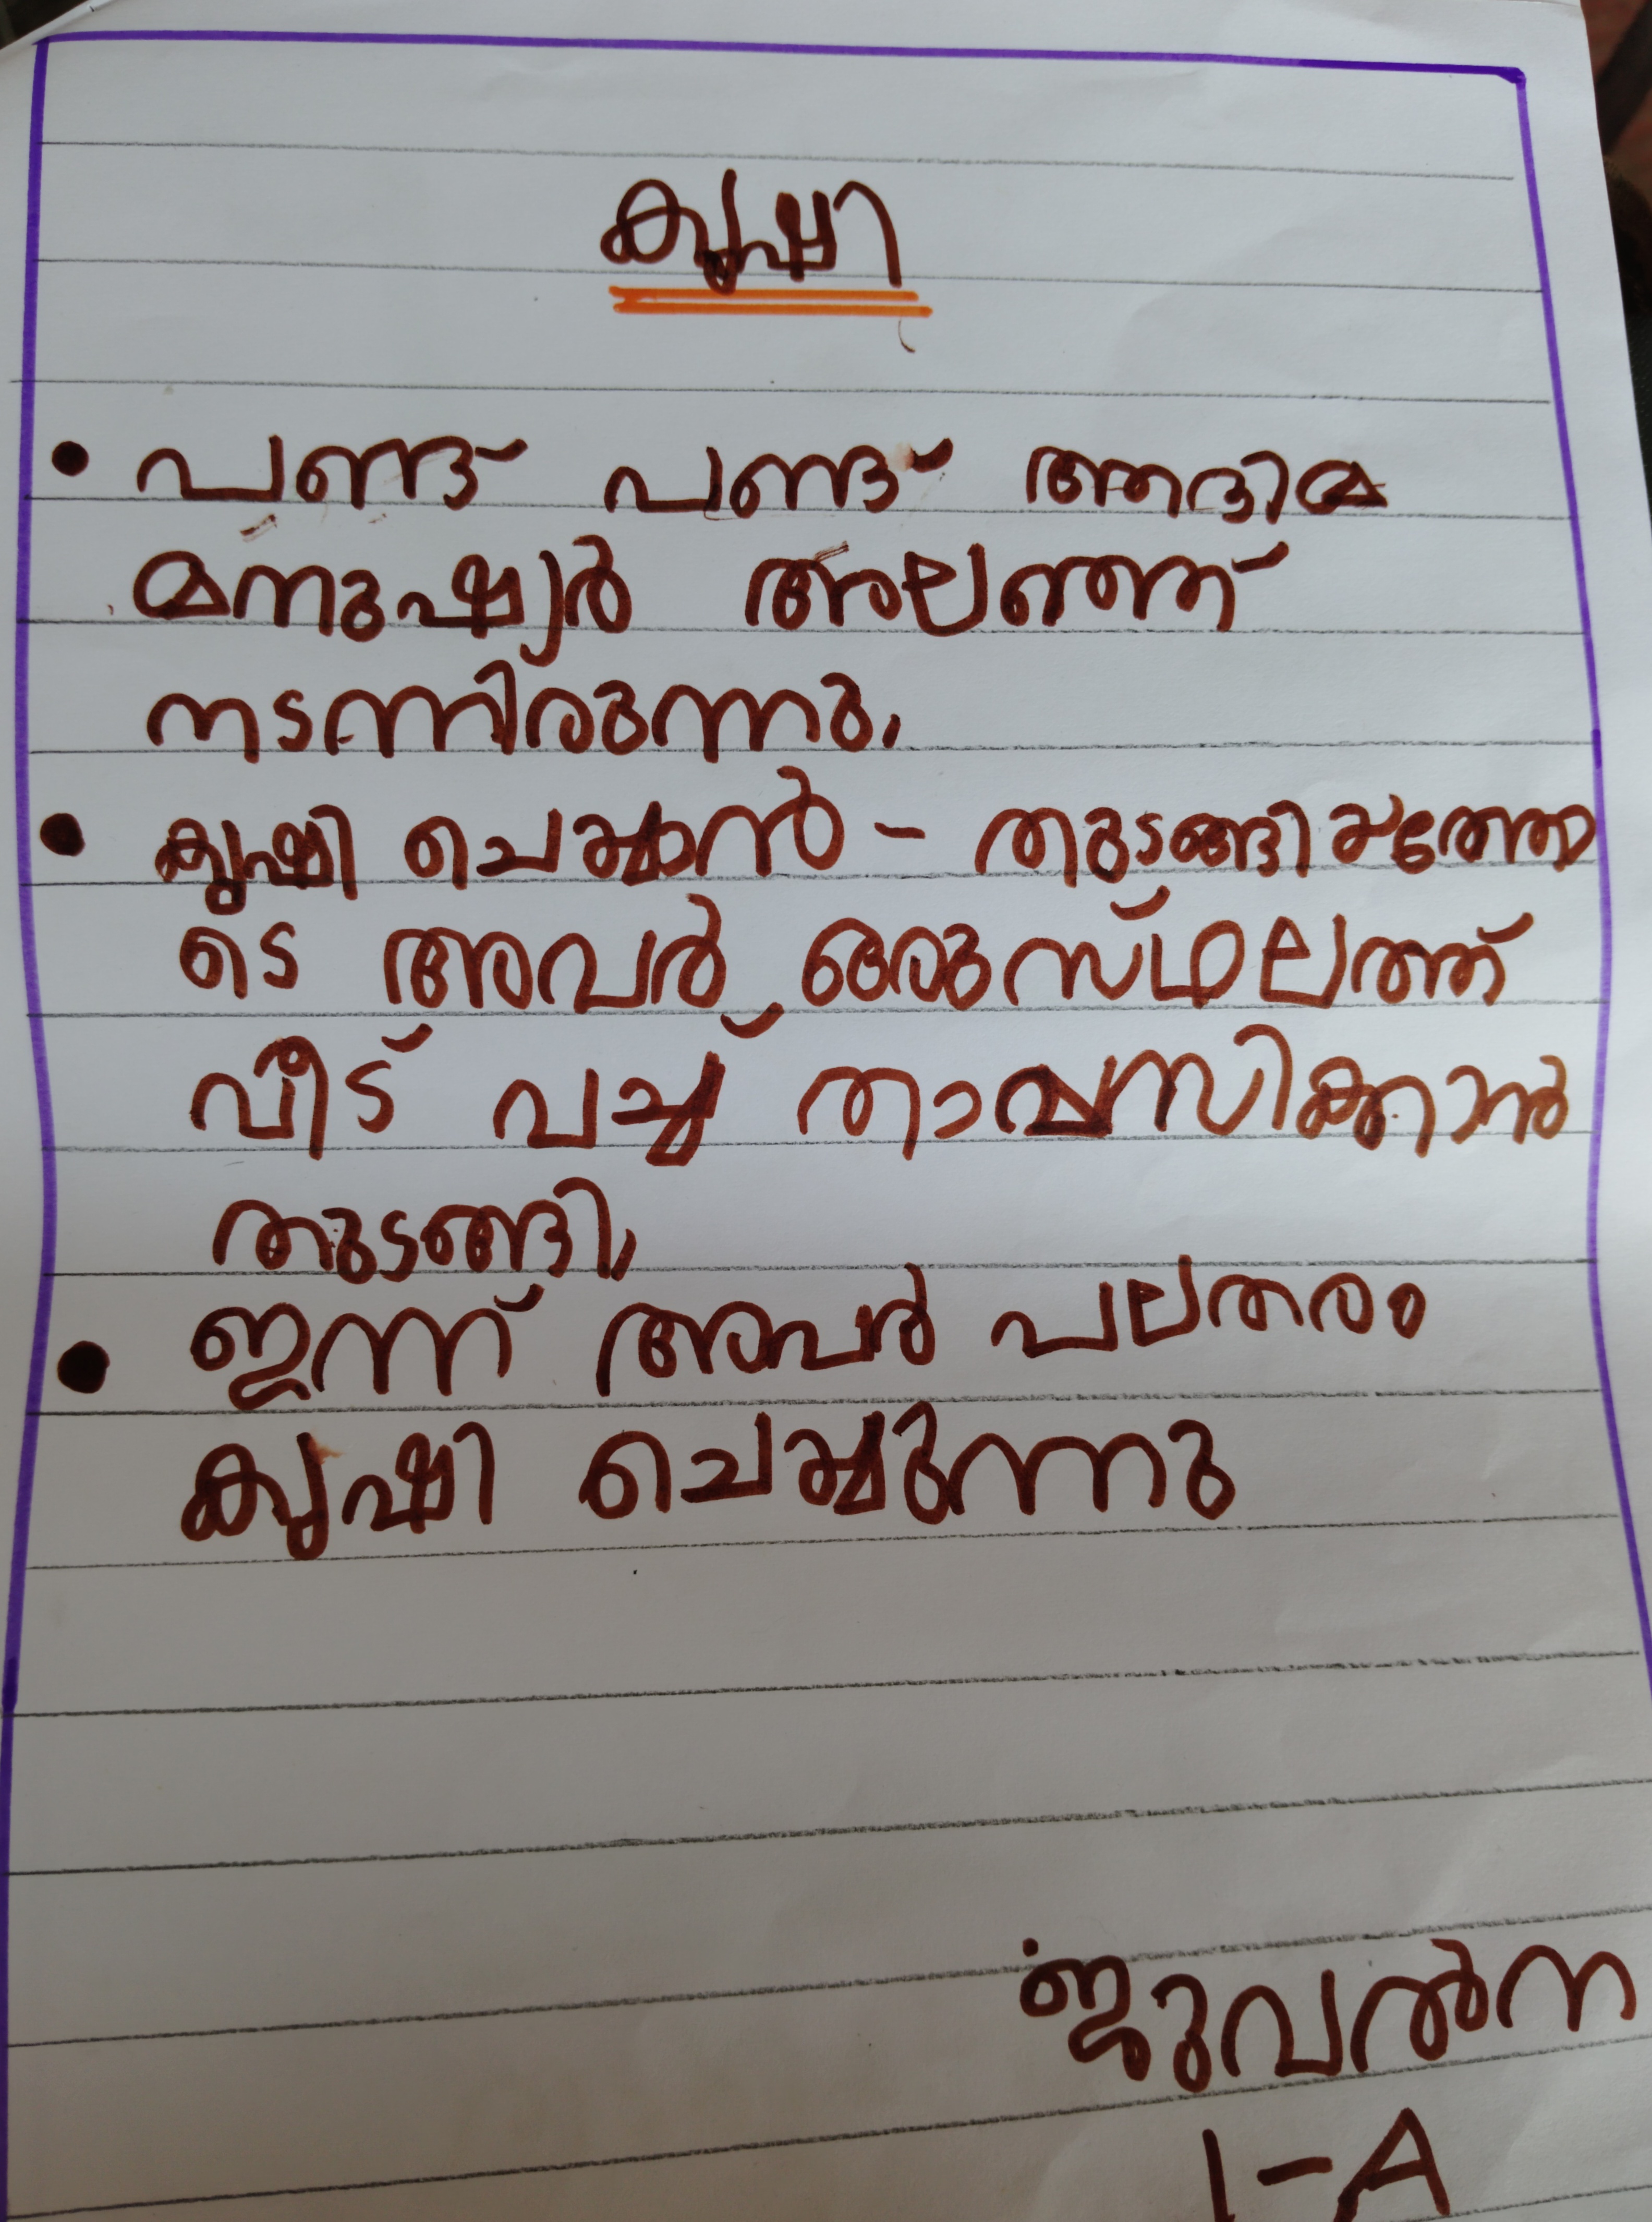 കൃഷി
• പണ്ട് പണ്ട് ആദിമ
മനുഷ്യർ അലഞ്ഞ്
നടന്നിരുന്നു.
• കൃഷി ചെയ്യാൻ - തുടങ്ങിയത്തോ
ടെ അവർ ഒരുസ്ഥലത്ത്
വീട് വച്ച് താമസിക്കാൻ
തുടങ്ങി,
• ഇന്ന് അവർ പലതരം
കൃഷി ചെയ്യുന്നു
1-A